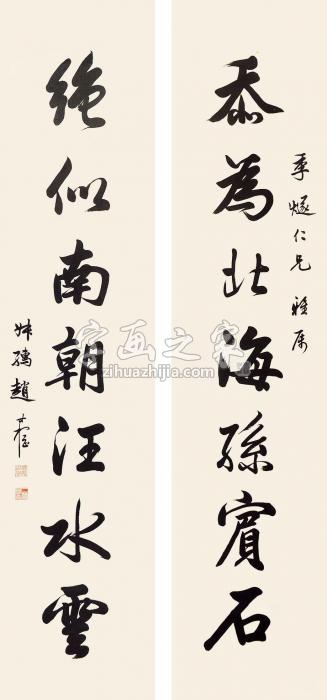 忝為北海孫賓石
季仁兄雅属
絶似南朝汪水雲
叔孺趙
字画之家
zihuazhijia.com